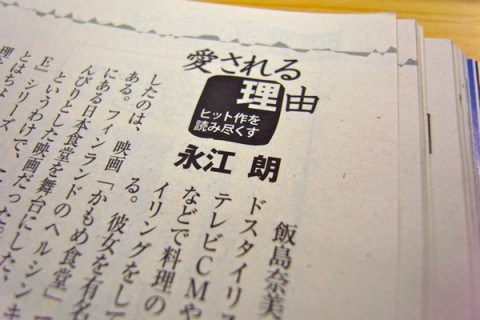 愛される
理由
ヒット作を
読み尽くす
永江 朗
飯島奈美
ドスタイリス
テレビCMや
などで料理の
イリングをして
る。彼女を有名
したのは、映画「かもめ食堂」
ある。フィンランドのヘルシンキ
にある日本食堂を舞台にした、
んびりとした映画だった。
というわけで、
E』シリーズ
とはちょ